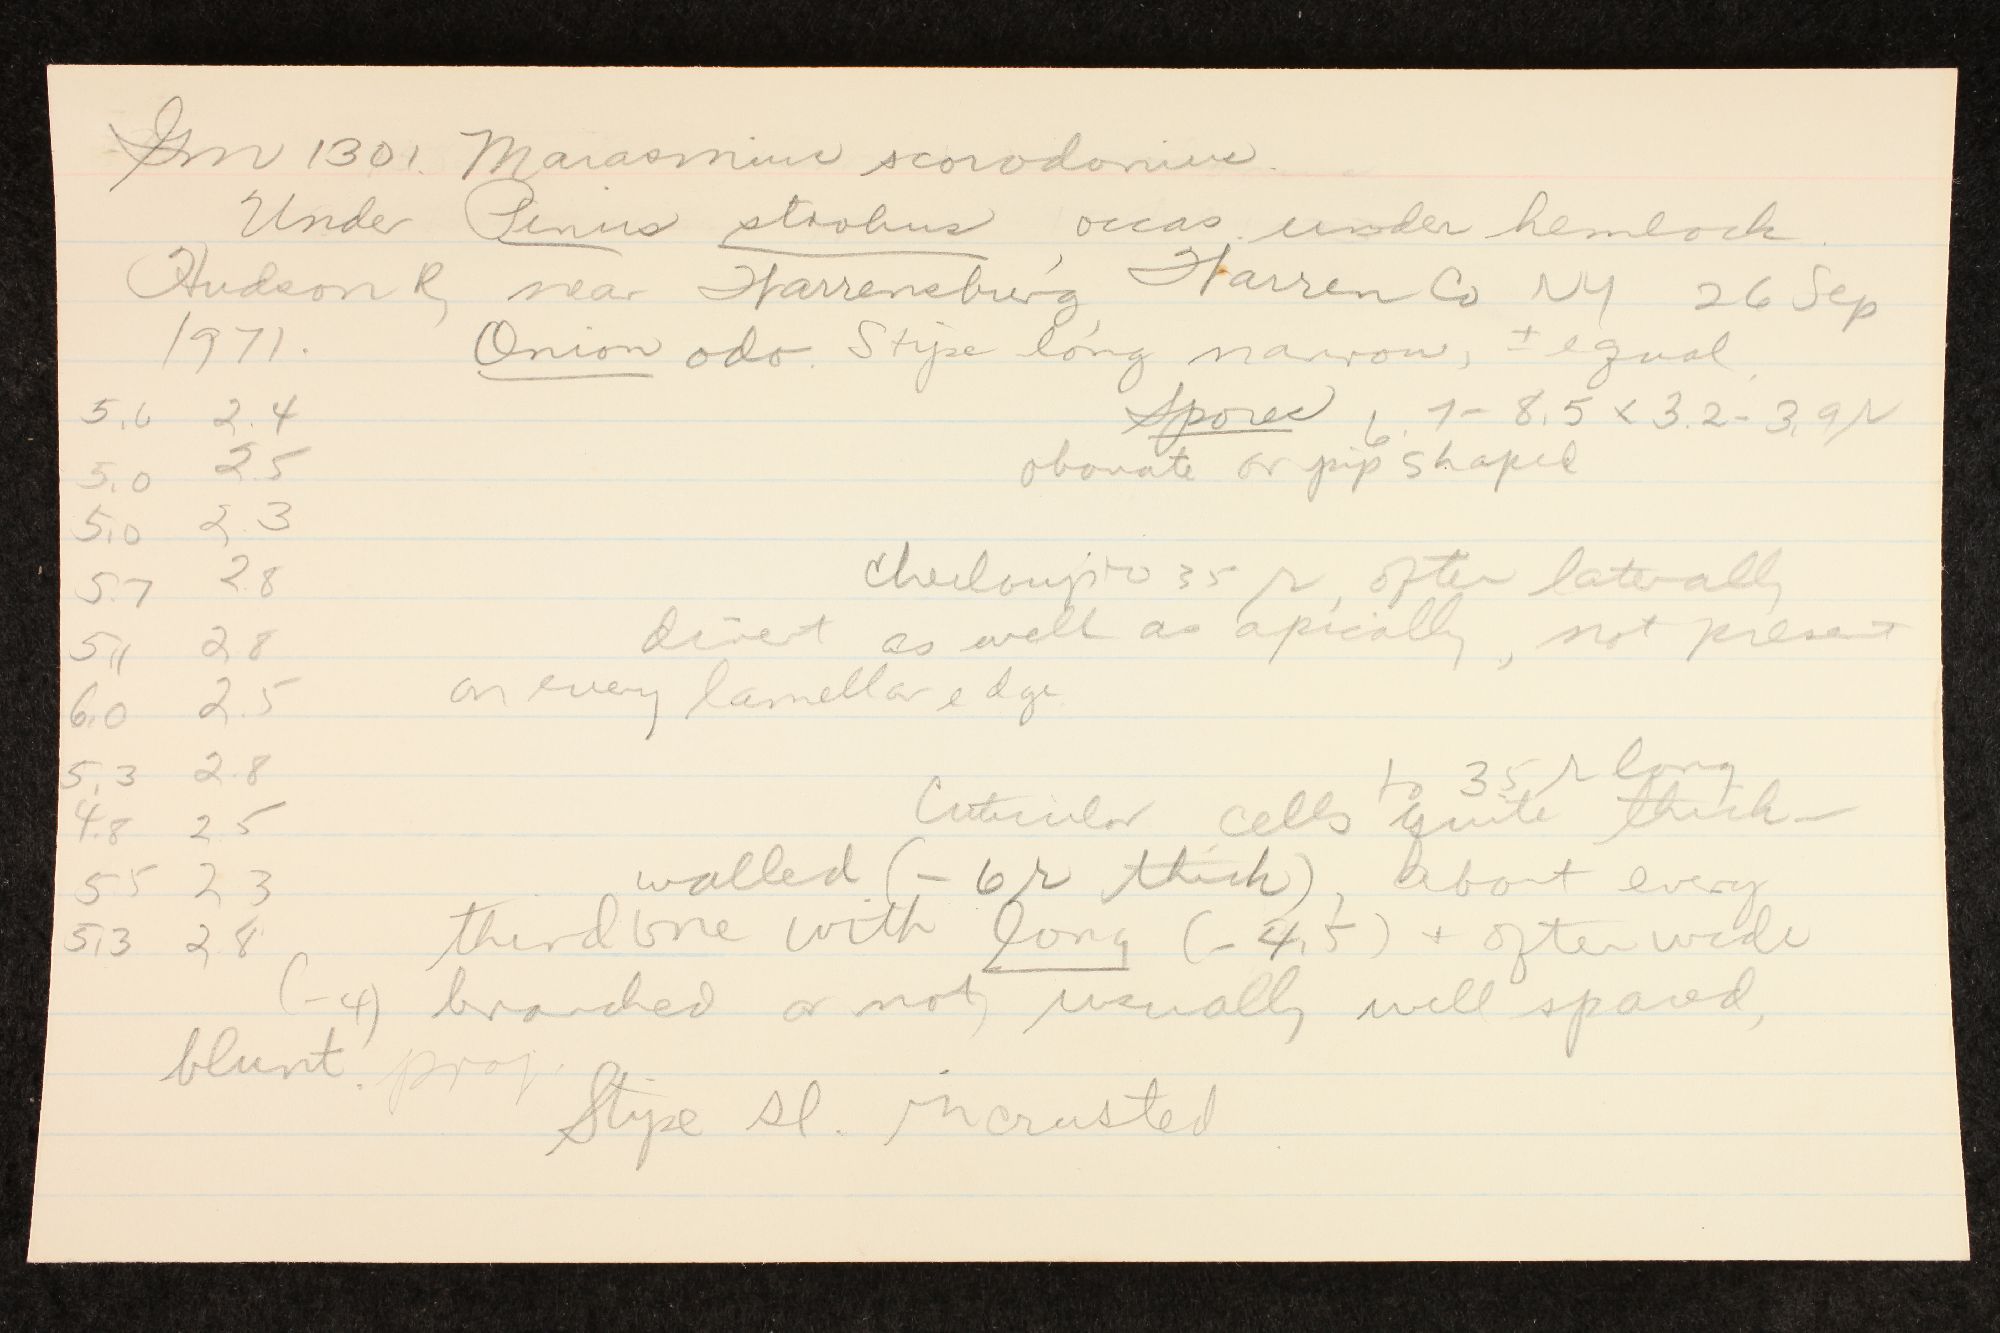 Gm 1301. Marasmius scorodonius.
Under Pinus strobus, occas. under hemlock.
Hudson R, near Warrensburg, Warren Co NY 26 Sep
1971. Onion odo. Stipe long narrow, ± equal.
5.6 2.4 Spores 6.7- 8.5 x 3.2- 3.9 μ
5.0 2.5 obovate or pip shaped
5.0 2.3
5.7 2.8 to 35 μ, often laterally
5.1 2.8 divert as well as apically, not present
6.0 2.5 on every lamellar edge.
5.3 2.8 to 35 μ long
4.8 2.5 Cuticular cells quite thick-
5.5 2.3 walled (- 6 μ thick), about every
5.3 2.8 third one with long (- 4.5) + often wide
(-4) branched or not, usually well spaced,
blunt. proj.
Stipe sl. incrusted